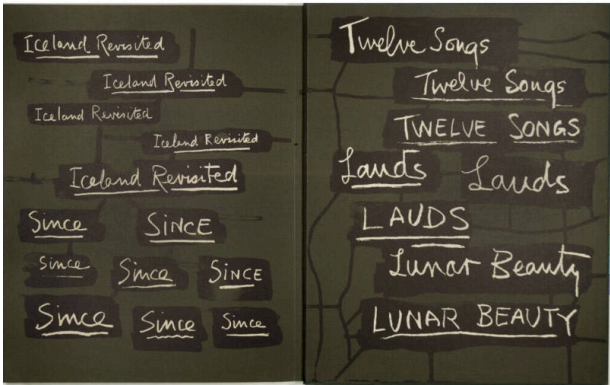 Iceland Revisited
Iceland Revisited
Iceland Revisited
Iceland Revisited
Iceland Revisited
Since SINCE
Since Since SINCE
Since Since Since
Twelve Songs
Twelve Songs
TWELVE SONGS
Lauds Lauds
LAUDS
Lunar Beauty
LUNAR BEAUTY